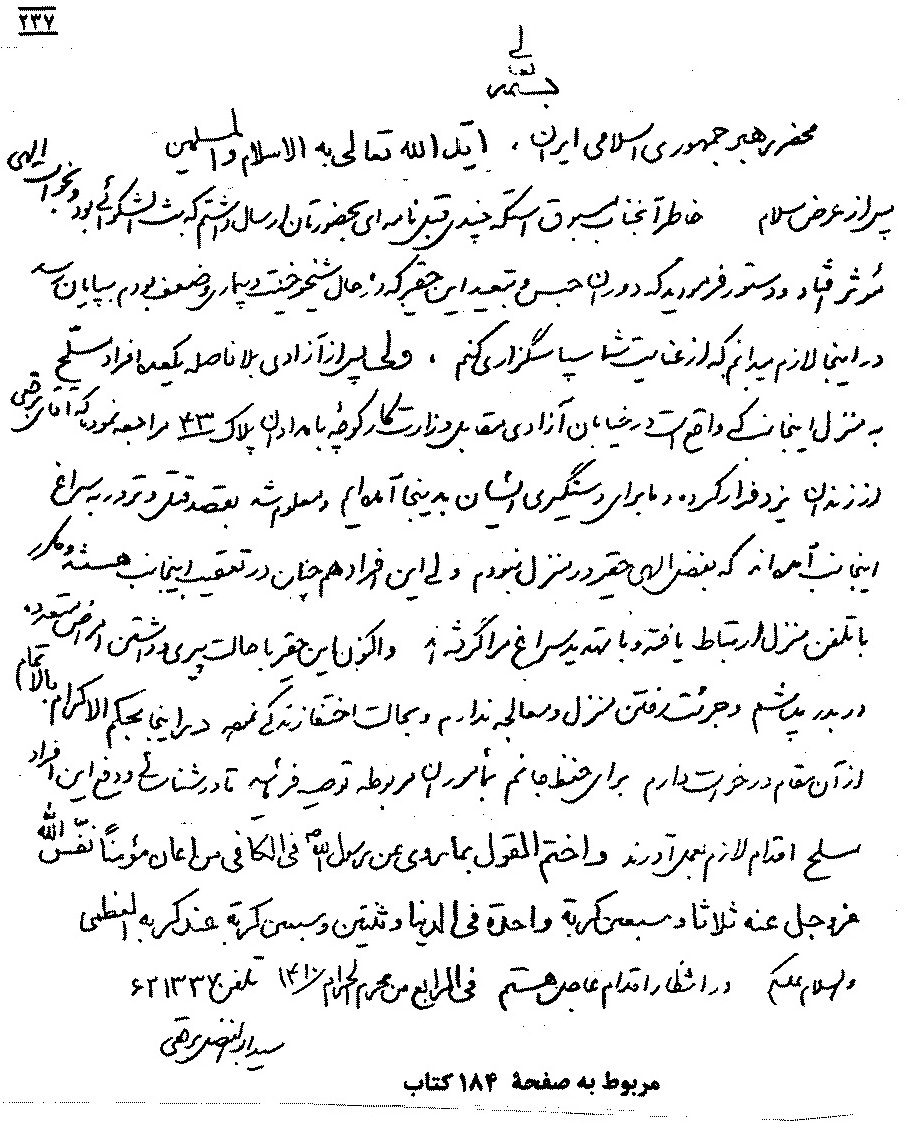 ۲۳۷
بسمه تعالی
محضر رهبر جمهوری اسلامی ایران، ایدک الله تعالی به الاسلام والمسلمین
پس از عرض سلام خاطر آنجناب مسبوق استکه چندی قبل نامه‌ای بحضورتان ارسال داشتم که بث الشکوائی بود و بخواست الهی
مؤثر افتاد و دستور فرمودید که دوران حبس و تبعید این حقیر که در حال شیخوخیت و بیماری و ضعف بودم بپایان رسد
در اینجا لازم میدانم که از عنایت شما سپاسگزاری کنم، ولی پس از آزادی بلافاصله یکعده افراد مسلح
به منزل اینجانب که واقع است در خیابان آزادی مقابل وزارت کار کوچهٔ بامدادان پلاک ۴۳ مراجعه نموده که آقای برقعی
از زندان یزد فرار کرده و ما برای دستگیری ایشان بدینجا آمده‌ایم و معلوم شد بقصد قتل و ترور به سراغ
اینجانب آمده‌اند که بفضل الهی حقیر در منزل نبودم ولی این افراد همچنان در تعقیب اینجانب هستند و مکرر
با تلفن منزل ارتباط یافته و با تهدید سراغ مرا گرفته‌اند و اکنون این حقیر با حالت پیری و داشتن امراض متعدده
در بدر شده‌ام و جرئت رفتن منزل و معالجه ندارم و بحالت اختفا زندگی نمیم در اینجا بحکم الاکرام بالاتمام
از آن مقام درخواست دارم برای حفظ جانم بمأموران مربوطه توصیه فرمائید تا در شناسائی و دفع این افراد
مسلح اقدام لازم بعمل آورند و اختم القول بما روی عن رسول الله ص فی الکافی من اعان مؤمناً نفّس الله
عزوجل عنه ثلاثا و سبعین کربة واحدة فی الدنیا و ثنتین و سبعین کربة عند کربه العظمی
والسلام علیکم در انتظار اقدام عاجل هستم فی الرابع من محرم الحرام ۱۴۱۰ تلفن ۶۲۱۳۳۷
سید ابوالفضل برقعی
مربوط به صفحهٔ ۱۸۴ کتاب